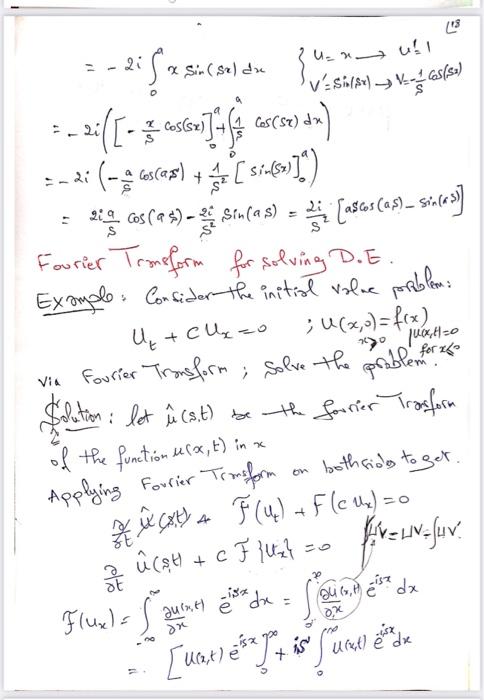 18
= - 2i ∫₀ᵃ x Sin(Sx) dx { u = x → u' = 1
V' = Sin(Sx) → V = -1/S Cos(Sx)
= - 2i ([- x/S Cos(Sx)]₀ᵃ + ∫₀ᵃ 1/S Cos(Sx) dx)
= - 2i (- a/S Cos(aS) + 1/S² [Sin(Sx)]₀ᵃ)
= 2ia/S Cos(aS) - 2i/S² Sin(aS) = 2i/S² [aS Cos(aS) - Sin(aS)]
Fourier Transform for solving D.E.
Example: Consider the initial value problem:
U_t + C U_x = 0 ; U(x,0) = f(x)
x>0 | U(x,t)=0
for x≤0
Via Fourier Transform ; Solve the problem.
Solution: let û(s,t) be the fourier Transform
of the function u(x,t) in x
Applying Fourier Transform on both sides to get.
∂/∂t F(U_t) + F(C U_x) = 0
∂/∂t û(s,t) + C F{U_x} = 0 ∫u'v = uv - ∫uv'
F(U_x) = ∫_{-∞}^{∞} ∂u(x,t)/∂x e^{-isx} dx = ∫₀^∞ ∂u(x,t)/∂x e^{-isx} dx
= [U(x,t) e^{-isx}]₀^∞ + is ∫₀^∞ u(x,t) e^{-isx} dx